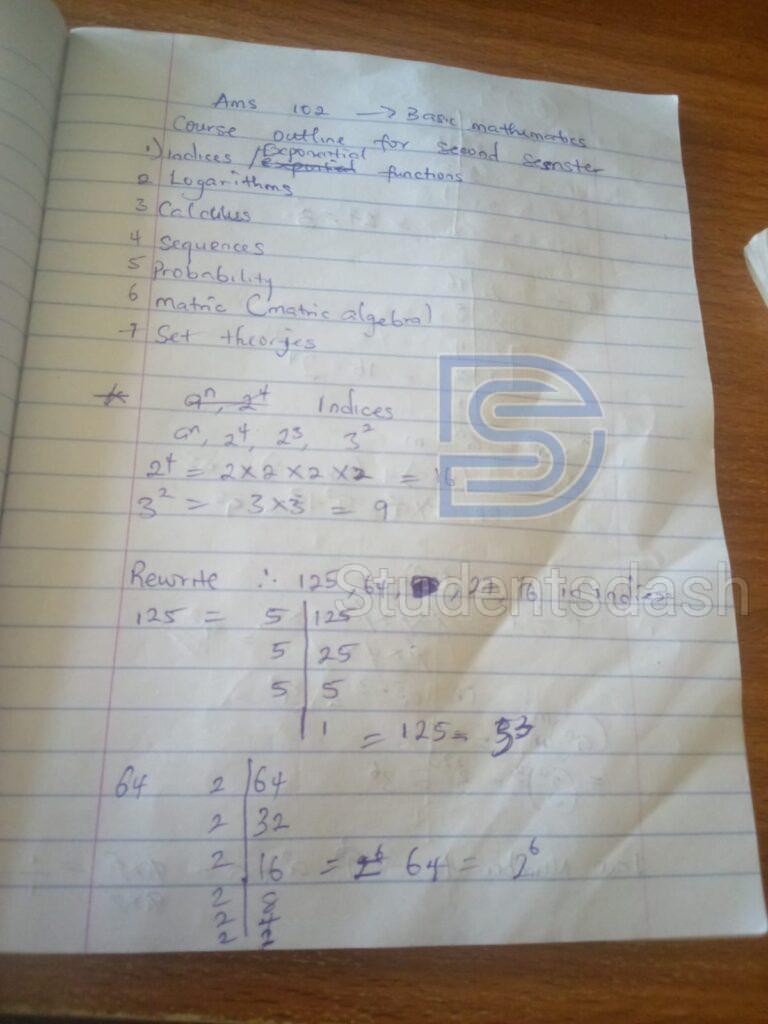 Ams 102 → Basic mathematics
Course outline for second semster
1) Indices / Exponential functions
2 Logarithms
3 Calculus
4 Sequences
5 Probability
6 matric (matric algebra)
7 Set theories
* aⁿ, 2⁴ Indices
aⁿ, 2⁴, 2³, 3²
2⁴ = 2 × 2 × 2 × 2 = 16
3² = 3 × 3 = 9
Rewrite ∴ 125, 64, , 27, 16 in indices
Studentsdash
125 = 5 | 125
5 | 25
5 | 5
| 1 = 125 = 5³
64 2 | 64
2 | 32
2 | 16 = 2⁶ 64 = 2⁶
2 | 8
2 | 4
2 | 2